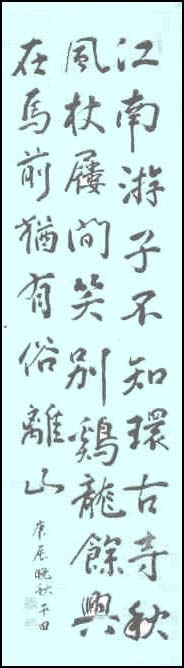 江南游子不知環古寺秋
風杖屨間笑別鷄龍餘興
在馬前猶有俗離山
庚辰晚秋